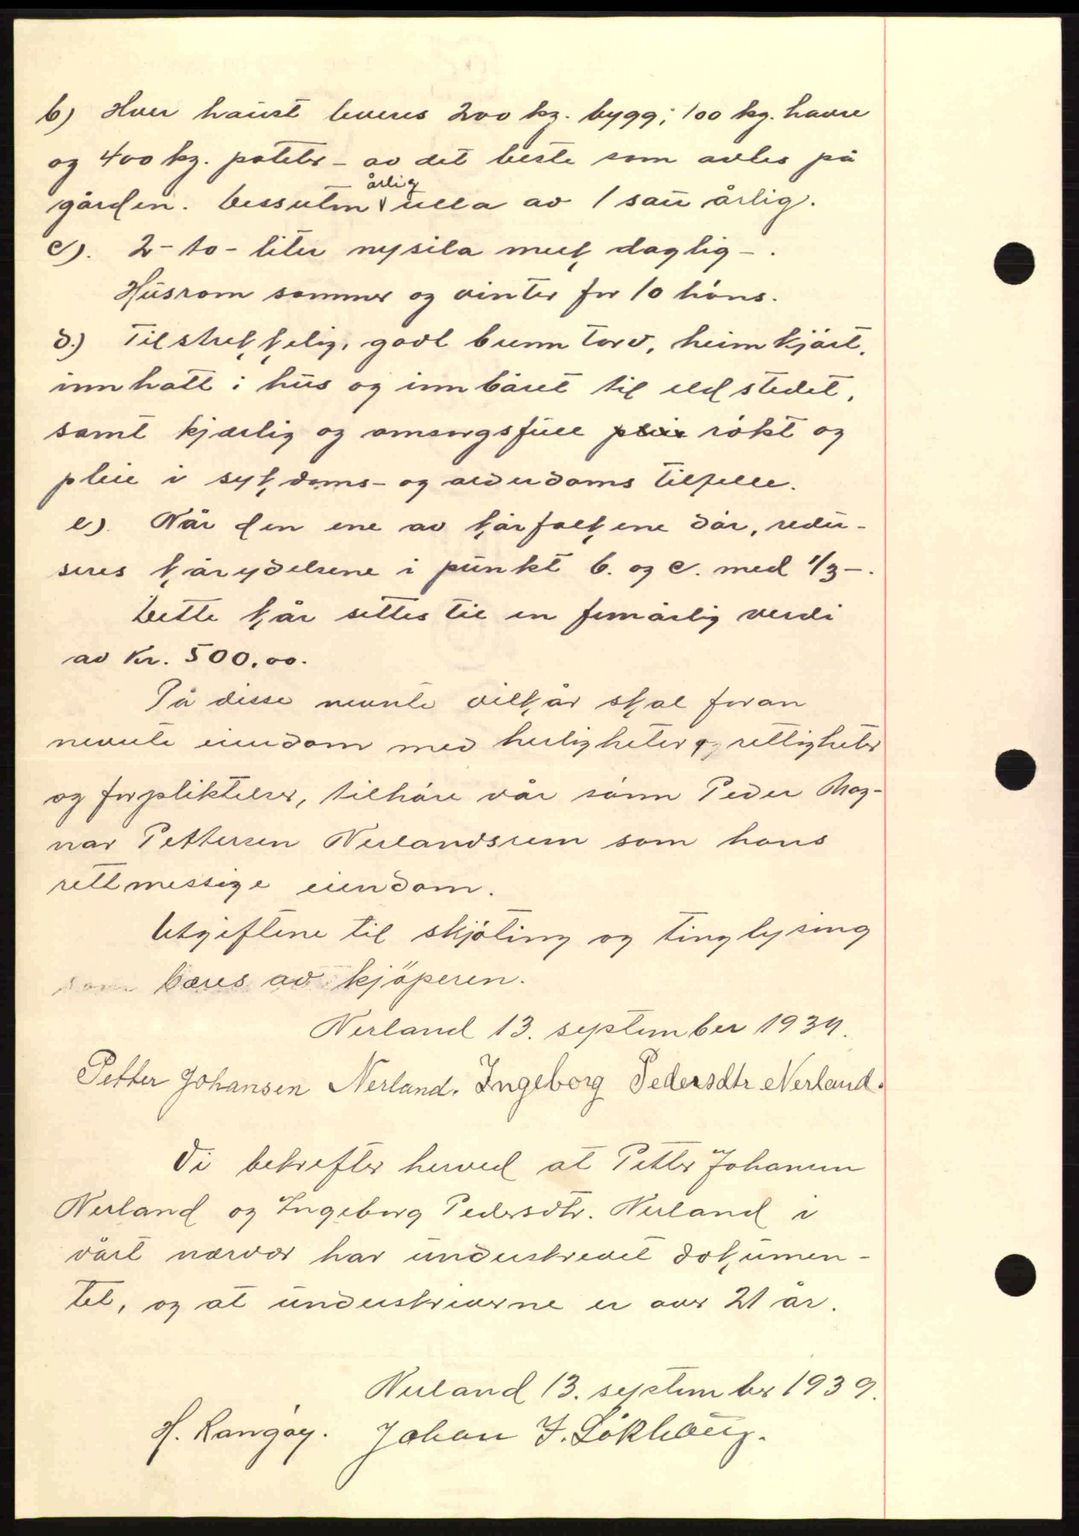 b) Hver haust leveres 200 kg. bygg; 100 kg. havre
og 400 kg. poteter - av det beste som avles på
gården. Dessuten årlig ulla av 1 sau årlig.
c). 2 - to - liter nysila melk daglig - .
Husrom sommer og vinter for 10 höns.
d.) Tilstrekkelig, godt brenntorv, heimkjört,
innhatt i hus og innbåret til eldstedet,
samt kjærlig og omsorgsfull røkt og
pleie i sykdoms- og alderdoms tilfelle.
e). Når den ene av kårfolkene dör, redu-
seres kårydelsene i punkt b. og c. med 1/3 - .
Dette kår settes til en femårlig verdi
av Kr. 500.00.
På disse nevnte vilkår skal foran
nevnte eiendom med herligheter og rettigheter
og forpliktelser, tilhöre vår sönn Peder Mag-
nar Pettersen Nerlandsrem som hans
rettmessige eiendom.
Utgiftene til skjöting og tinglysing
som bæres av kjöperen.
Nerland 13. september 1939.
Petter Johansen Nerland. Ingeborg Pedersdtr. Nerland.
Vi bekrefter herved at Petter Johansen
Nerland og Ingeborg Pedersdtr. Nerland i
vårt nærvær har underskrevet dokumen-
tet, og at underskriverne er over 21 år.
Nerland 13. september 1939.
H. Rangöy. Johan J. Lökhaug.